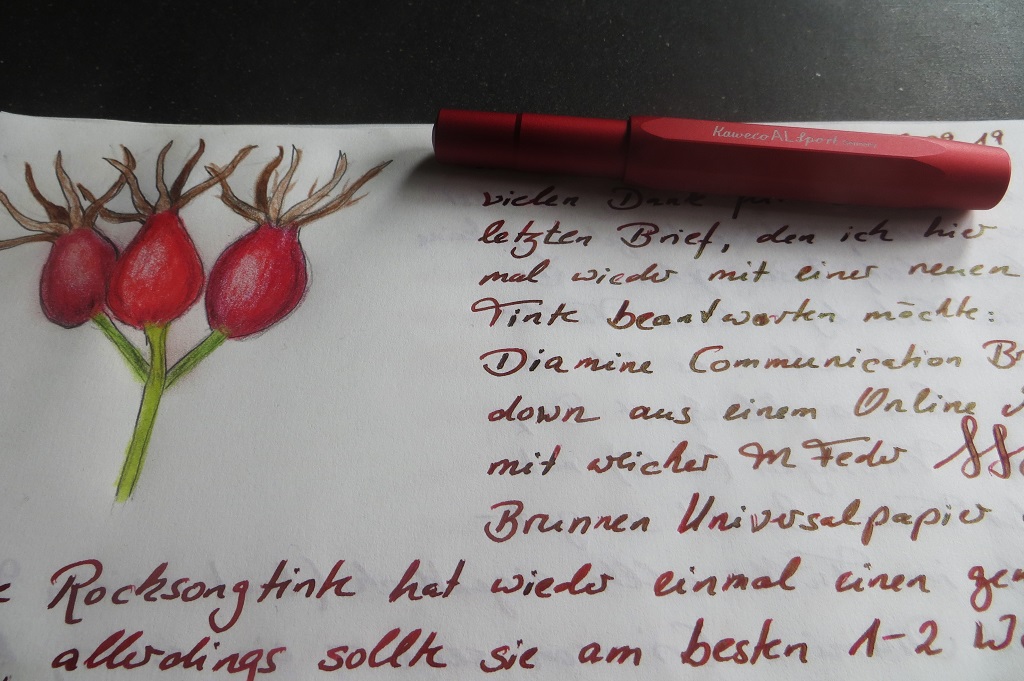 Kaweco AL Sport
19
vielen Dank
letzten Brief, den ich hier
mal wieder mit einer neuen
Tinte beantworten möchte:
Diamine Communication Br
down aus einem Online
mit weicher M Feder
Brunnen Universalpapier
Rocksongtinte hat wieder einmal einen
allerdings sollte sie am besten 1-2